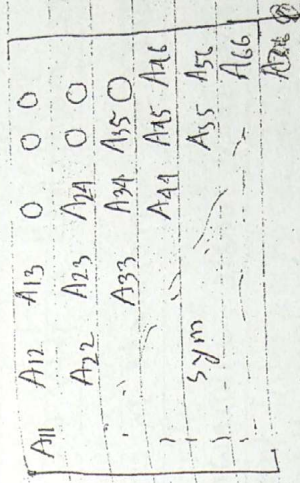 A11 A12 A13 0 0 0
A22 A23 A24 0 0
A33 A34 A35 0
A44 A45 A46
Sym A55 A56
A66